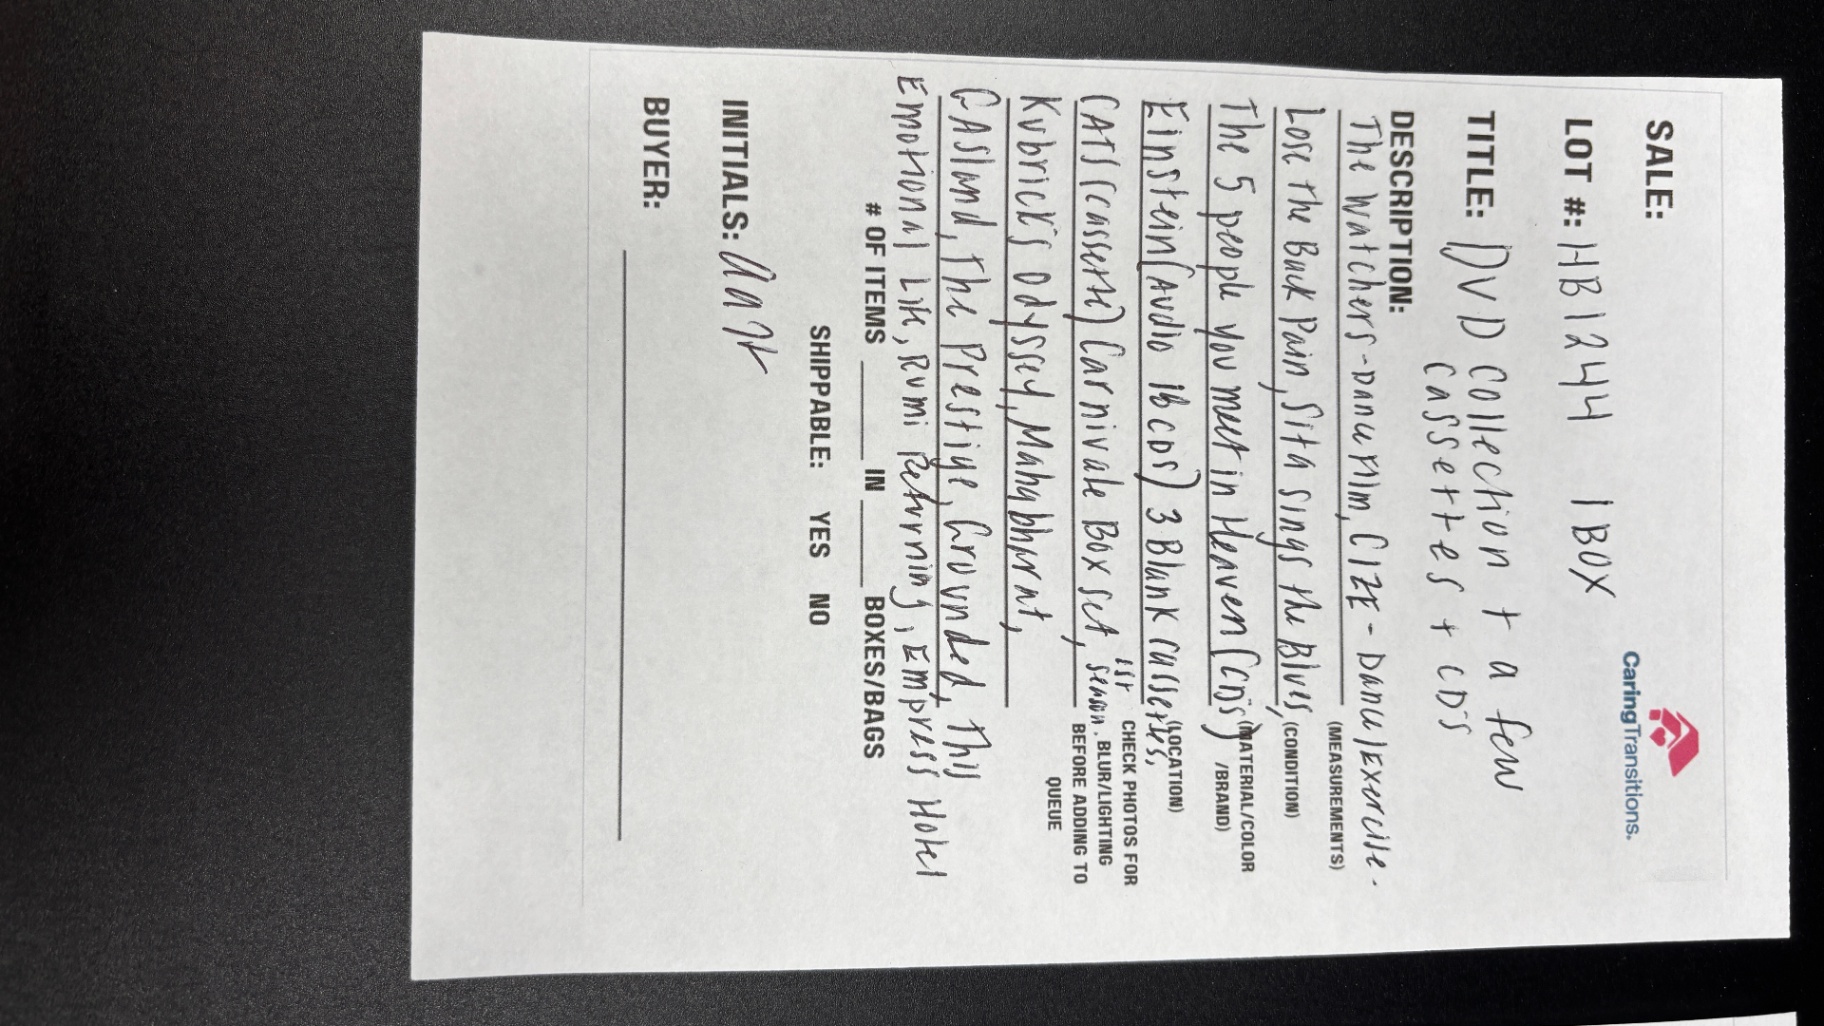 CaringTransitions.
SALE:
LOT #: HB1244 1 BOX
TITLE: DVD Collection + a few
Cassettes + CD's
DESCRIPTION:
The Watchers - Dance Film, CIZE - Dance/Exercise -
(MEASUREMENTS)
Lose the Back Pain, Sita Sings the Blues,
(CONDITION)
The 5 people you meet in Heaven (CD's)
(MATERIAL/COLOR
/BRAND)
Einstein (Audio 16 CDs) 3 Blank cassettes,
(LOCATION)
CATS (cassette) Carnivale Box set, 1st season.
CHECK PHOTOS FOR
BLUR/LIGHTING
BEFORE ADDING TO
QUEUE
Kubrick's Odyssey, Mahabharat,
GASland, The Prestige, Grounded, This
Emotional Life, Rumi Returning, Empress Hotel
# OF ITEMS ____ IN ____ BOXES/BAGS
SHIPPABLE: YES NO
INITIALS:
BUYER: